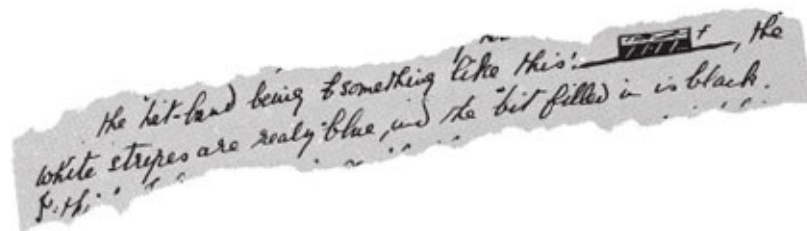 the hat-band being something like this: f, the
white stripes are really blue, and the bit filled in is black.